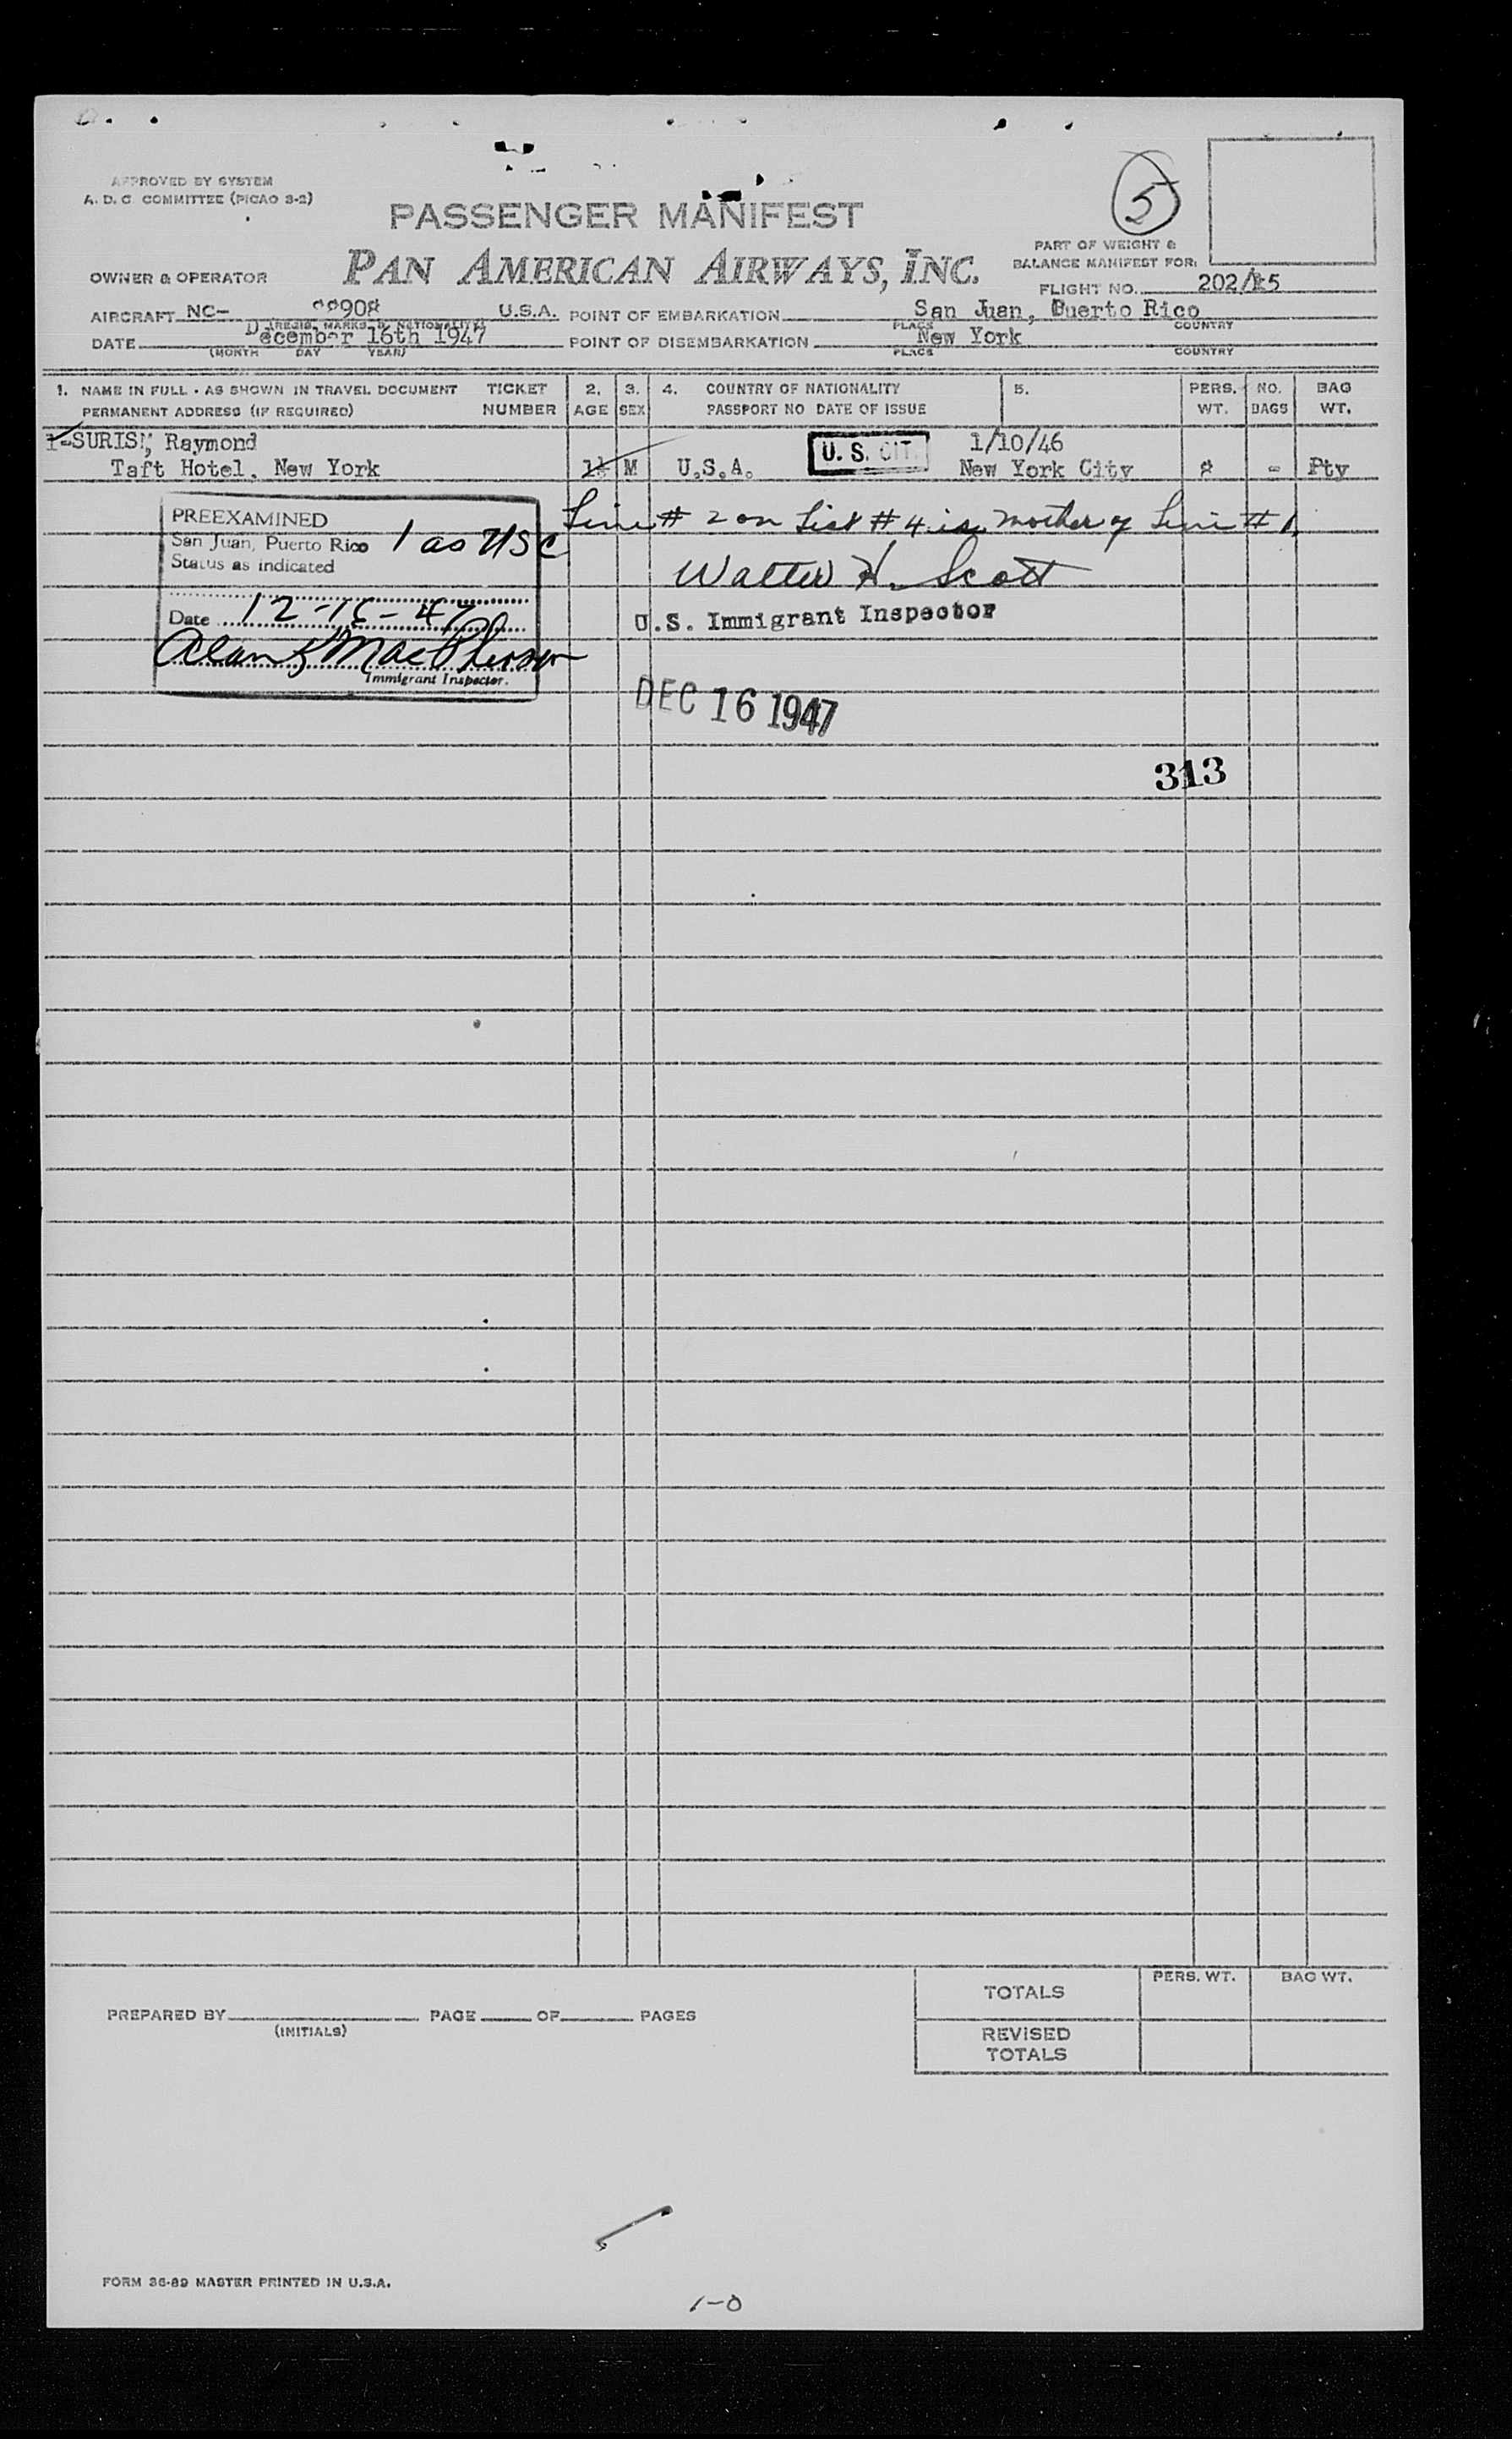 APPROVED BY SYSTEM
A. D. C. COMMITTEE (PICAO 3-2)
5
PASSENGER MANIFEST
PAN AMERICAN AIRWAYS, INC.
PART OF WEIGHT &
BALANCE MANIFEST FOR:
OWNER & OPERATOR
FLIGHT NO. 202/
AIRCRAFT NC- 908 U.S.A. POINT OF EMBARKATION San Juan, Puerto Rico
(REGIS. MARKS & NATIONALITY) PLACE COUNTRY
DATE December 16th 1947 POINT OF DISEMBARKATION New York
(MONTH DAY YEAR) PLACE COUNTRY
1. NAME IN FULL - AS SHOWN IN TRAVEL DOCUMENT TICKET 2. 3. 4. COUNTRY OF NATIONALITY 5. PERS. NO. BAG
PERMANENT ADDRESS (IF REQUIRED) NUMBER AGE SEX PASSPORT NO DATE OF ISSUE WT. BAGS WT.
Raymond 1/10/46
Taft Hotel, New York M U.S.A. U. S. CIT. New York City - Pty
Line # 2 on List # 4 is mother of Line # 1.
PREEXAMINED
San Juan, Puerto Rico 1 as USC
Status as indicated
Walter H. Scott
Date 12-16-47
U.S. Immigrant Inspector
Alan MacPherson
Immigrant Inspector.
DEC 16 1947
313
TOTALS PERS. WT. BAG WT.
PREPARED BY PAGE OF PAGES
(INITIALS)
REVISED
TOTALS
FORM 36-89 MASTER PRINTED IN U.S.A.
1-0